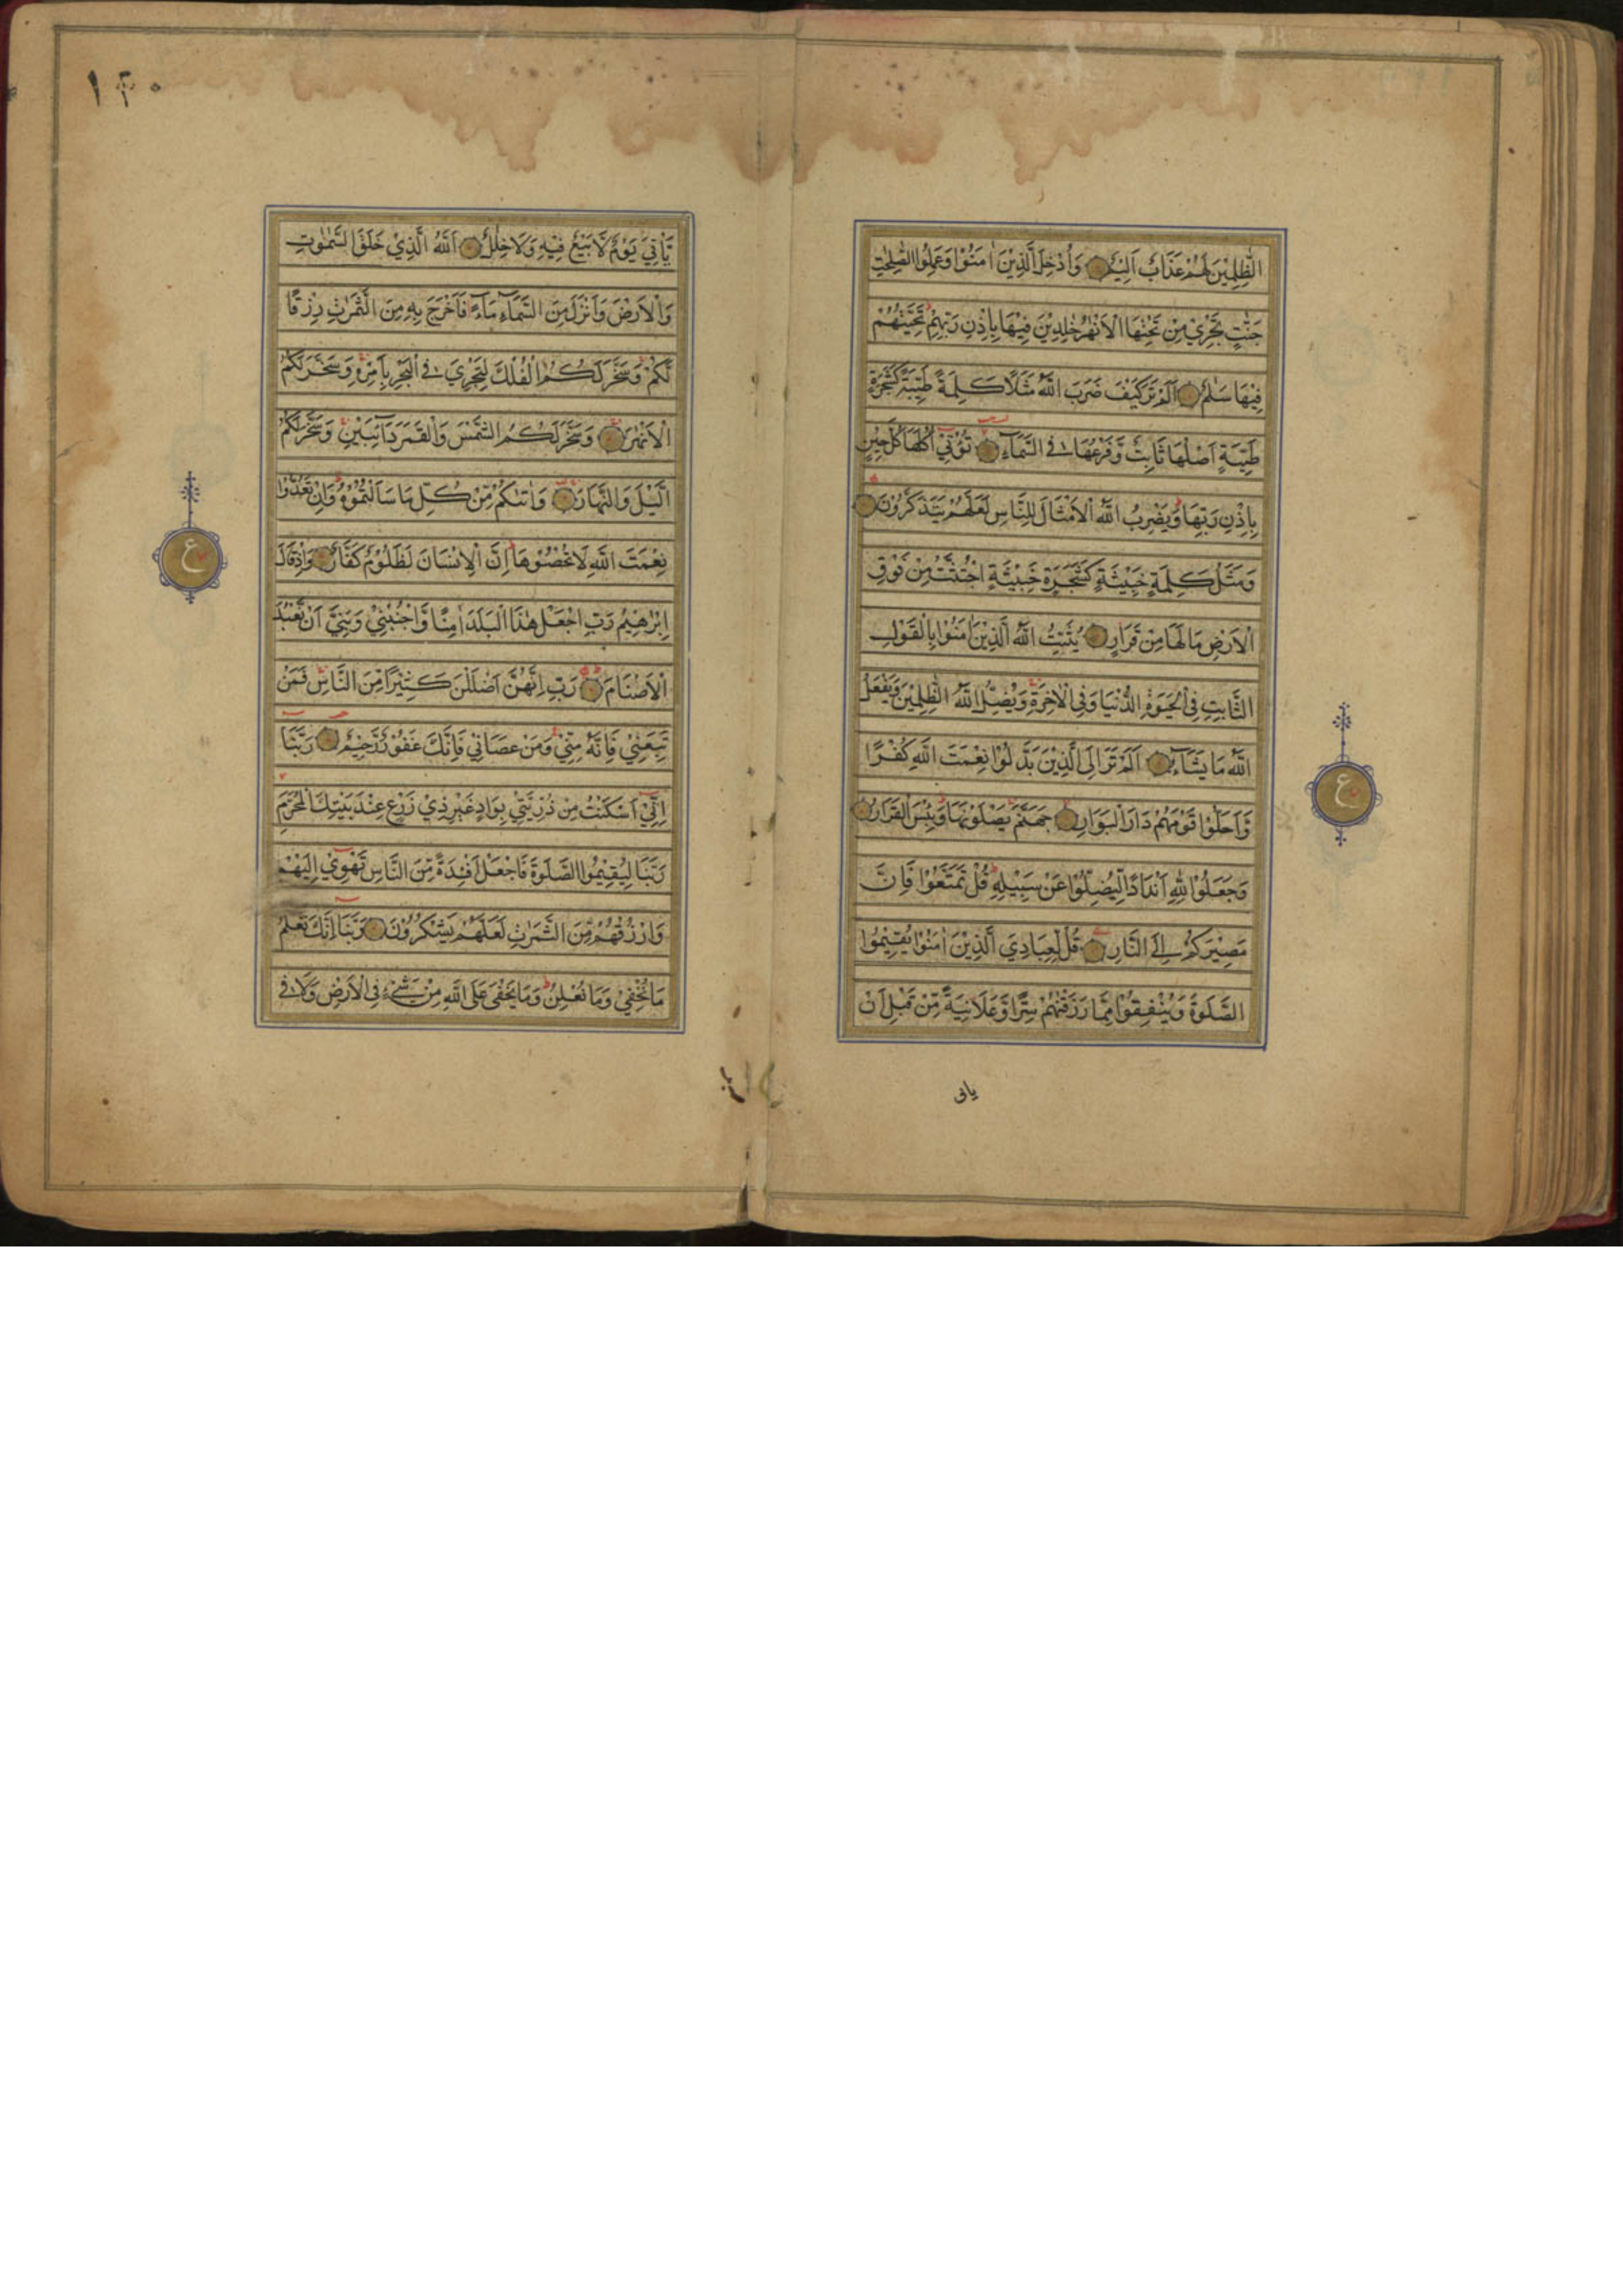 الظّٰلِمِيْنَ لَهُمْ عَذَابٌ اَلِيْمٌ وَاُدْخِلَ الَّذِيْنَ اٰمَنُوْا وَعَمِلُوا الصّٰلِحٰتِ
جَنّٰتٍ تَجْرِيْ مِنْ تَحْتِهَا الْاَنْهٰرُ خٰلِدِيْنَ فِيْهَا بِاِذْنِ رَبِّهِمْ تَحِيَّتُهُمْ
فِيْهَا سَلٰمٌ اَلَمْ تَرَ كَيْفَ ضَرَبَ اللّٰهُ مَثَلًا كَلِمَةً طَيِّبَةً كَشَجَرَةٍ
طَيِّبَةٍ اَصْلُهَا ثَابِتٌ وَّفَرْعُهَا فِي السَّمَآءِ تُؤْتِيْ اُكُلَهَا كُلَّ حِيْنٍ
بِاِذْنِ رَبِّهَا وَيَضْرِبُ اللّٰهُ الْاَمْثَالَ لِلنَّاسِ لَعَلَّهُمْ يَتَذَكَّرُوْنَ
وَمَثَلُ كَلِمَةٍ خَبِيْثَةٍ كَشَجَرَةٍ خَبِيْثَةٍ اجْتُثَّتْ مِنْ فَوْقِ
الْاَرْضِ مَا لَهَا مِنْ قَرَارٍ يُثَبِّتُ اللّٰهُ الَّذِيْنَ اٰمَنُوْا بِالْقَوْلِ
الثَّابِتِ فِي الْحَيٰوةِ الدُّنْيَا وَفِي الْاٰخِرَةِ وَيُضِلُّ اللّٰهُ الظّٰلِمِيْنَ وَيَفْعَلُ
اللّٰهُ مَا يَشَآءُ اَلَمْ تَرَ اِلَى الَّذِيْنَ بَدَّلُوْا نِعْمَتَ اللّٰهِ كُفْرًا
وَّاَحَلُّوْا قَوْمَهُمْ دَارَ الْبَوَارِ جَهَنَّمَ يَصْلَوْنَهَا وَبِئْسَ الْقَرَارُ
وَجَعَلُوْا لِلّٰهِ اَنْدَادًا لِّيُضِلُّوْا عَنْ سَبِيْلِهٖ قُلْ تَمَتَّعُوْا فَاِنَّ
مَصِيْرَكُمْ اِلَى النَّارِ قُلْ لِّعِبَادِيَ الَّذِيْنَ اٰمَنُوْا يُقِيْمُوا
الصَّلٰوةَ وَيُنْفِقُوْا مِمَّا رَزَقْنٰهُمْ سِرًّا وَّعَلَانِيَةً مِّنْ قَبْلِ اَنْ
ياتى
ع
١٤٠
يَّاْتِيَ يَوْمٌ لَّا بَيْعٌ فِيْهِ وَلَا خِلٰلٌ اَللّٰهُ الَّذِيْ خَلَقَ السَّمٰوٰتِ
وَالْاَرْضَ وَاَنْزَلَ مِنَ السَّمَآءِ مَآءً فَاَخْرَجَ بِهٖ مِنَ الثَّمَرٰتِ رِزْقًا
لَّكُمْ وَسَخَّرَ لَكُمُ الْفُلْكَ لِتَجْرِيَ فِي الْبَحْرِ بِاَمْرِهٖ وَسَخَّرَ لَكُمُ
الْاَنْهٰرَ وَسَخَّرَ لَكُمُ الشَّمْسَ وَالْقَمَرَ دَآئِبَيْنِ وَسَخَّرَ لَكُمُ
الَّيْلَ وَالنَّهَارَ وَاٰتٰىكُمْ مِّنْ كُلِّ مَا سَاَلْتُمُوْهُ وَاِنْ تَعُدُّوْا
نِعْمَتَ اللّٰهِ لَا تُحْصُوْهَا اِنَّ الْاِنْسَانَ لَظَلُوْمٌ كَفَّارٌ وَاِذْ قَالَ
اِبْرٰهِيْمُ رَبِّ اجْعَلْ هٰذَا الْبَلَدَ اٰمِنًا وَّاجْنُبْنِيْ وَبَنِيَّ اَنْ نَّعْبُدَ
الْاَصْنَامَ رَبِّ اِنَّهُنَّ اَضْلَلْنَ كَثِيْرًا مِّنَ النَّاسِ فَمَنْ
تَبِعَنِيْ فَاِنَّهٗ مِنِّيْ وَمَنْ عَصَانِيْ فَاِنَّكَ غَفُوْرٌ رَّحِيْمٌ رَبَّنَا
اِنِّيْ اَسْكَنْتُ مِنْ ذُرِّيَّتِيْ بِوَادٍ غَيْرِ ذِيْ زَرْعٍ عِنْدَ بَيْتِكَ الْمُحَرَّمِ
رَبَّنَا لِيُقِيْمُوا الصَّلٰوةَ فَاجْعَلْ اَفْئِدَةً مِّنَ النَّاسِ تَهْوِيْ اِلَيْهِمْ
وَارْزُقْهُمْ مِّنَ الثَّمَرٰتِ لَعَلَّهُمْ يَشْكُرُوْنَ رَبَّنَا اِنَّكَ تَعْلَمُ
مَا نُخْفِيْ وَمَا نُعْلِنُ وَمَا يَخْفٰى عَلَى اللّٰهِ مِنْ شَيْءٍ فِي الْاَرْضِ وَلَا فِي
ع